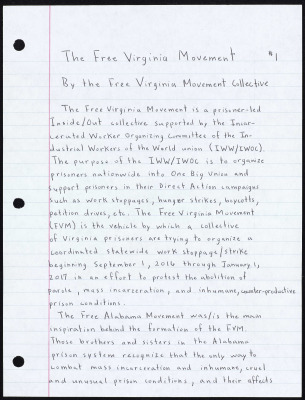 The Free Virginia Movement #1
By the Free Virginia Movement Collective
The Free Virginia Movement is a prisoner-led
Inside/Out collective supported by the Incar-
cerated Worker Organizing Committee of the In-
dustrial Workers of the World union (IWW/IWOC).
The purpose of the IWW/IWOC is to organize
prisoners nationwide into One Big Union and
support prisoners in their Direct Action campaigns
such as work stoppages, hunger strikes, boycotts,
petition drives, etc. The Free Virginia Movement
(FVM) is the vehicle by which a collective
of Virginia prisoners are trying to organize a
coordinated statewide work stoppage/strike
beginning September 1, 2016 through January 1,
2017 in an effort to protest the abolition of
parole, mass incarceration, and inhumane, counter-productive
prison conditions.
The Free Alabama Movement was/is the main
inspiration behind the formation of the FVM.
Those brothers and sisters in the Alabama
prison system recognize that the only way to
combat mass incarceration and inhumane, cruel
and unusual prison conditions, and their affects